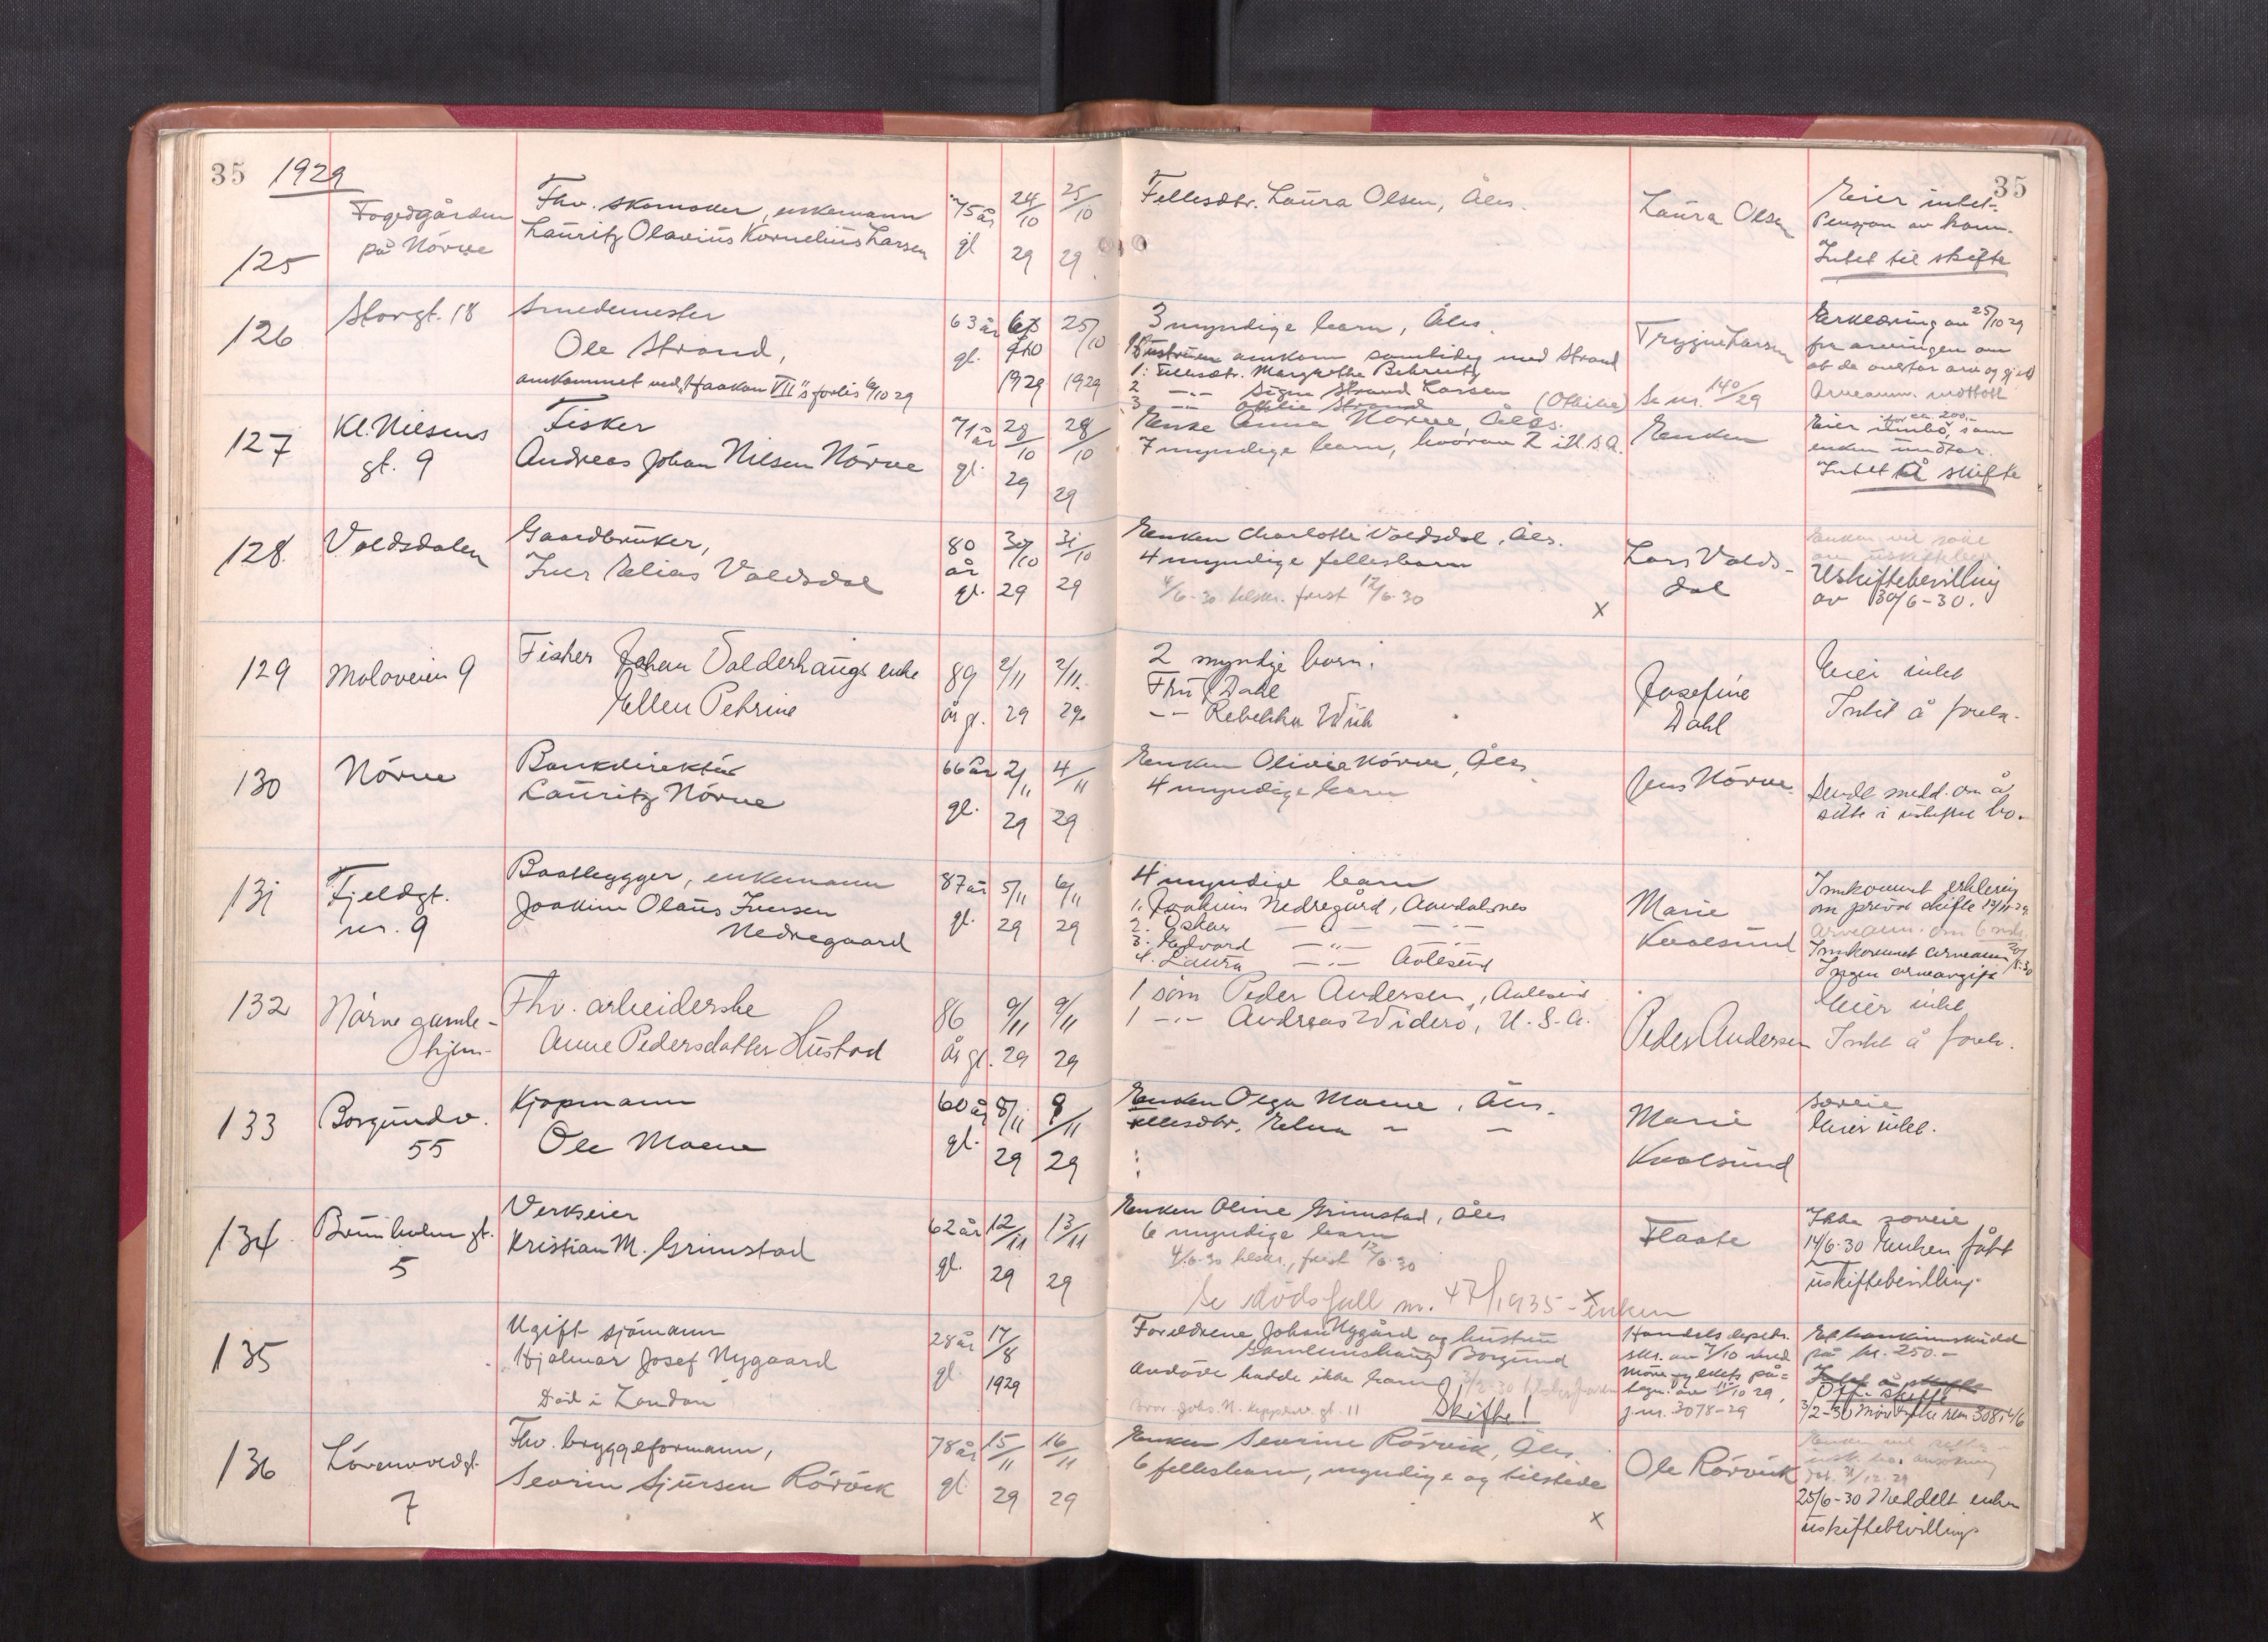 35 1929 35
125
Fogedgården
på Nörve
Fhv. skomaker, enkemann
Lauritz Olavius Kornelius Larsen
75 år gl
24/10 29
25/10 29
Fellesdtr. Laura Olsen, Åles.
Laura Olsen
Eier intet
Pensjon av kom.
Intet til skifte
126
Storgt. 18
Smedemester
Ole Strand,
omkommet ved "Haakon VII"s forlis 6/10 29
63 år gl.
1929
25/10 1929
3 myndige barn, Åles.
Hustruen omkom samtidig med Strand
1: Fellesdtr. Margrethe Behrentz
2 -"- Signe Strand Larsen
3 -"- Ottilie Strand (Othilie)
Trygve Larsen
Se nr. 140/29
Erklæring av 25/10 29
fra arvingen om
at de overtar arv og gjeld
Arveanm. mottatt
127
Kl. Nilsens
gt. 9
Fisker
Andreas Johan Nilsen Nörve
71 år gl.
28/10 29
28/10 29
Enke Anna Nörve, Åles.
7 myndige barn, hvorav 2 i U.S.A.
Enken
Eier innbo, ca. 200.- som
enken
Intet å skifte
128.
Voldsdalen
Gaardbruker,
Iver Elias Voldsdal
80 år gl.
30/10 29
31/10 29
Enken Charlotte Voldsdal, Åles.
4 myndige fellesbarn
4/6-30 tilskr. frist 12/6-30
x
Lars Volds-
dal
Enken vil söke
om uskiftebev.
Uskiftebevilling
av 30/6-30.
129
Moloveien 9
Fisker Johan Valderhaugs enke
Ellen Petrine
89 år gl.
2/11 29
2/11 29
2 myndige barn.
Fru J. Dahl
-"- Rebekka Wiik
Josefine
Dahl
Eier intet
Intet å foreta.
130
Nörve
Bankdirektör
Lauritz Nörve
66 år gl.
2/11 29
4/11 29
Enken Olivie Nörve, Åles.
4 myndige barn
Jens Nörve
Sendt medd. om å
sitte i uskiftet bo.
131
Fjeldgt.
nr. 9
Baatbygger, enkemann
Joakim Olaus Iversen
Nedregaard
87 år gl.
5/11 29
6/11 29
4 myndige barn
1. Joakim Nedregård, Aandalsnes
2. Oskar -"- -"-
3. Edvard -"- -"-
4. Laura -"- Aalesund
Marie
Kvalsund
Innkommet erklering
om privat skifte 13/11-29.
arveanm. om 6 mdr.
Innkommet arveanm. 20/5-30
Ingen arveavgift
132
Nörve gamle-
hjem
Fhv. arbeiderske
Anne Pedersdatter Hustad
86 år gl.
9/11 29
9/11 29
1 sön Peder Andersen, Aalesund
1 -"- Andreas Widerö, U.S.A.
Peder Andersen
Eier intet
Intet å foreta.
133
Borgundv.
55
Kjöpmann
Ole Moene
60 år gl.
8/11 29
9/11 29
Enken Olga Moene, Åles.
Fellesdtr. Edna - -
Marie
Kvalsund
særeie
Eier intet.
134
Brunholmgt.
5
Verkseier
Kristian M. Grimstad
62 år gl.
12/11 29
13/11 29
Enken Oline Grimstad, Åles
6 myndige barn
4/6-30 tilskr., frist 12/6-30
Se dödsfall nr. 47/1935 - enken
x
Flaate
Ikke særeie
14/6-30 Enken fått
uskiftebevilling.
135
Ugift sjömann
Hjalmar Josef Nygaard
Död i London
28 år gl.
17/8 1929
Foreldrene Johan Nygård og hustru
Gamlemshaug Borgund
Avdöde hadde ikke barn
Skifte!
Handelsdepartem.
skr. av 7/10 med
Möre fylkes på-
tegn. av 11/10 29,
j.nr. 3078-29
Et bankinnskudd
på kr. 250.-
Intet å skifte
Off. skifte
136
Lövenvoldgt.
7
Fhv. bryggeformann,
Severin Sjursen Rörvik
78 år gl.
15/11 29
16/11 29
Enken Severine Rörvik, Åles.
6 fellesbarn, myndige og tilstede
x
Ole Rörvik
25/6-30 Meddelt enken
uskiftebevilling